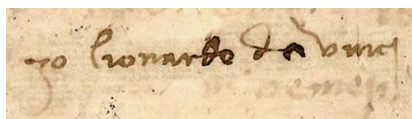 io lionardo da vinci